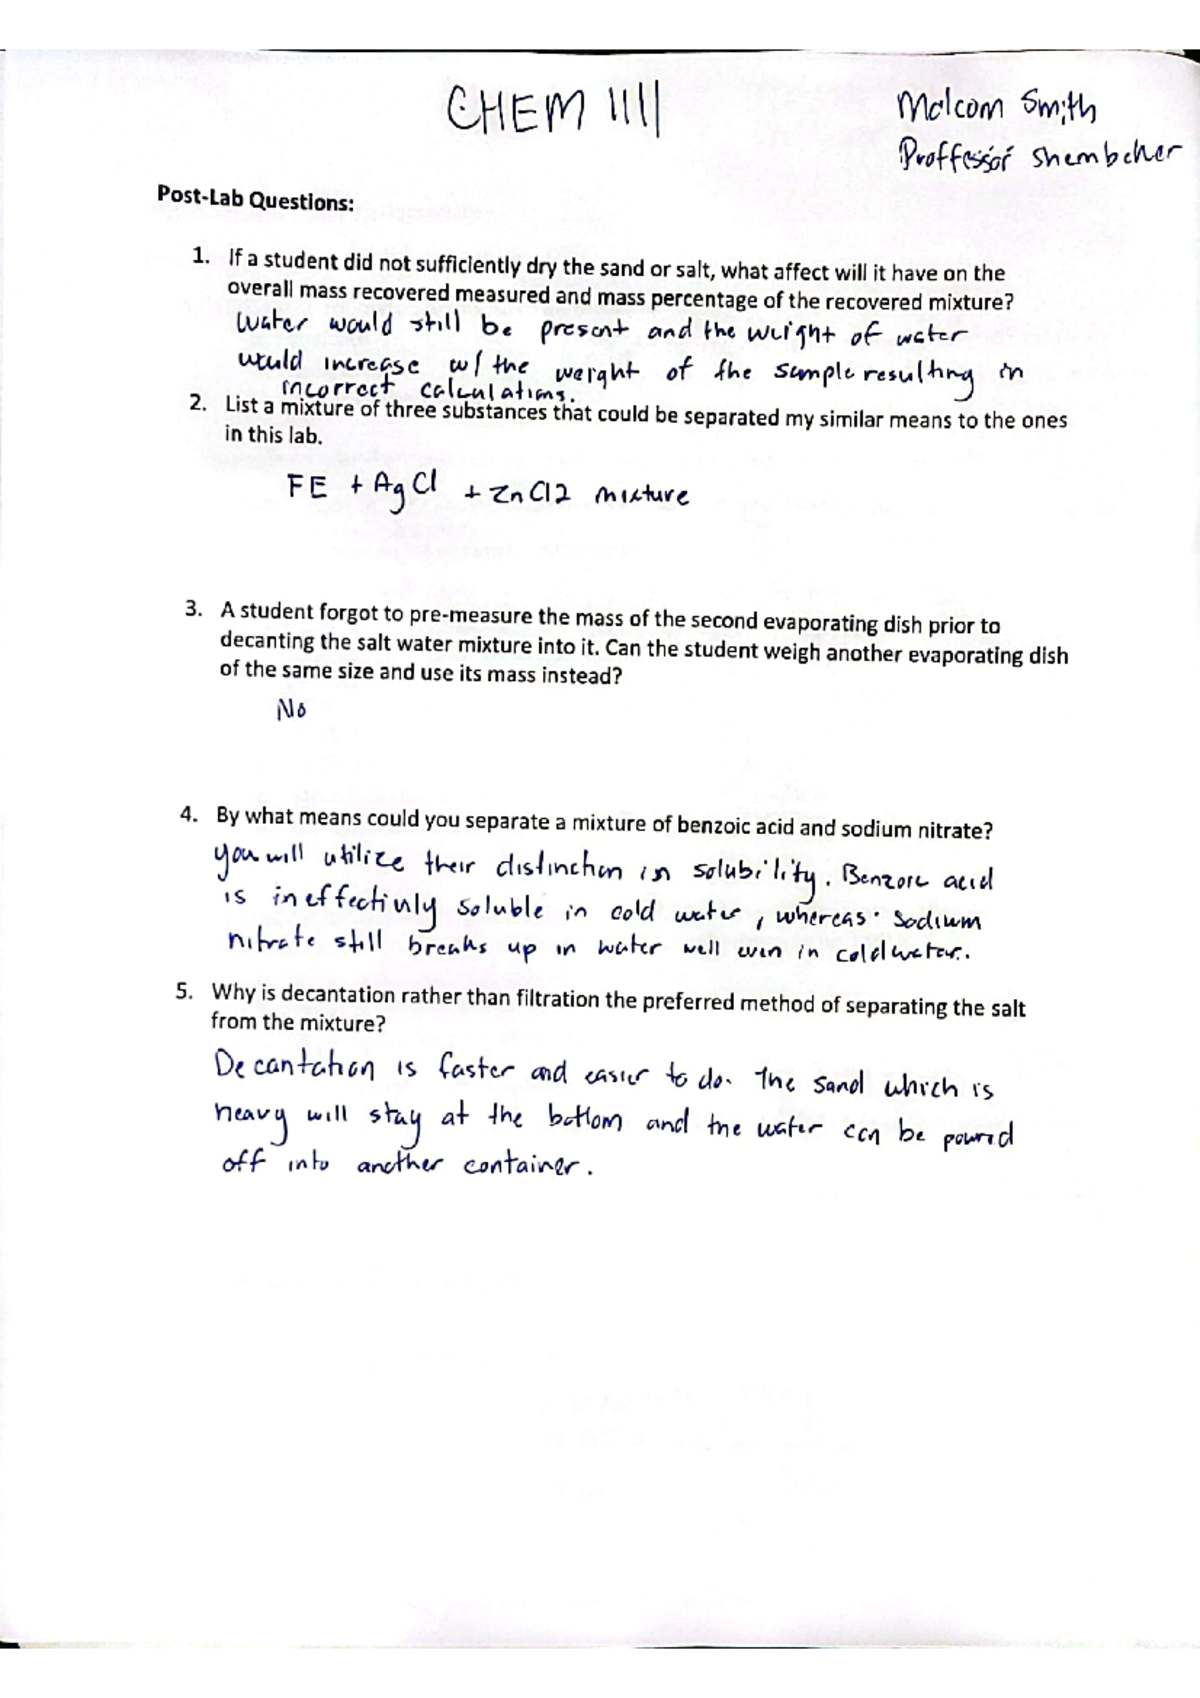 CHEM 1111
Malcom Smith
Proffessor Shembcher
Post-Lab Questions:
1. If a student did not sufficiently dry the sand or salt, what affect will it have on the
overall mass recovered measured and mass percentage of the recovered mixture?
Water would still be present and the weight of water
would increase w/ the weight of the sample resulting in
incorrect calculations.
2. List a mixture of three substances that could be separated my similar means to the ones
in this lab.
FE + AgCl + ZnCl2 mixture
3. A student forgot to pre-measure the mass of the second evaporating dish prior to
decanting the salt water mixture into it. Can the student weigh another evaporating dish
of the same size and use its mass instead?
No
4. By what means could you separate a mixture of benzoic acid and sodium nitrate?
you will utilize their distinction in solubility. Benzoic acid
is ineffectivly soluble in cold water, whereas sodium
nitrate still breaks up in water well even in cold water.
5. Why is decantation rather than filtration the preferred method of separating the salt
from the mixture?
Decantation is faster and easier to do. The sand which is
heavy will stay at the bottom and the water can be poured
off into another container.